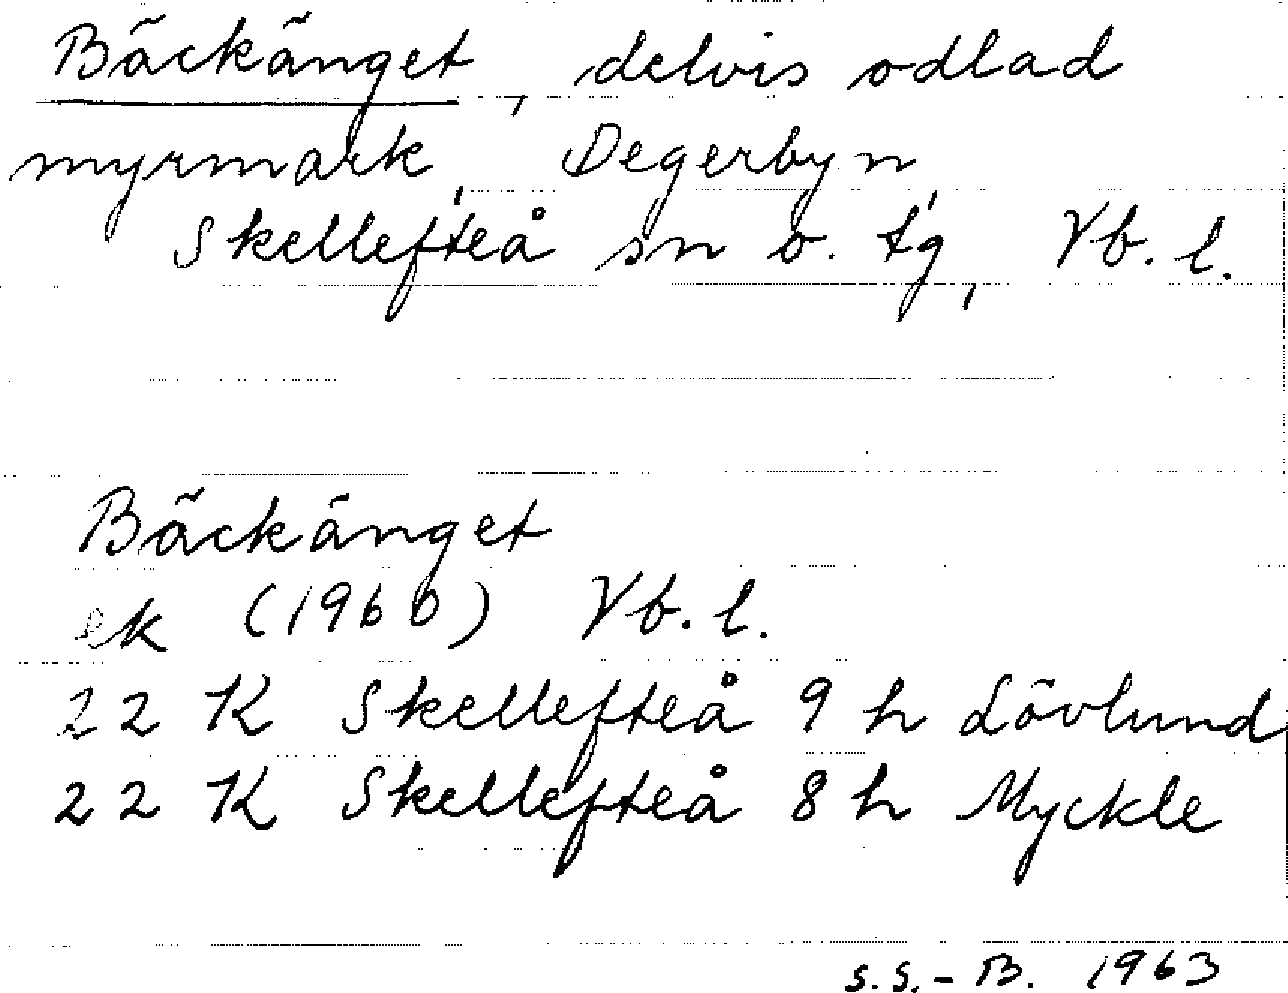 Bäckänget, delvis odlad
myrmark, Degerbyn,
Skellefteå sn o. tg, Vb. l.
Bäckänget
ek (1960) Vb. l.
22 K Skellefteå 9 h Lövlund
22 K Skellefteå 8 h Myckle
S.S.-B. 1963